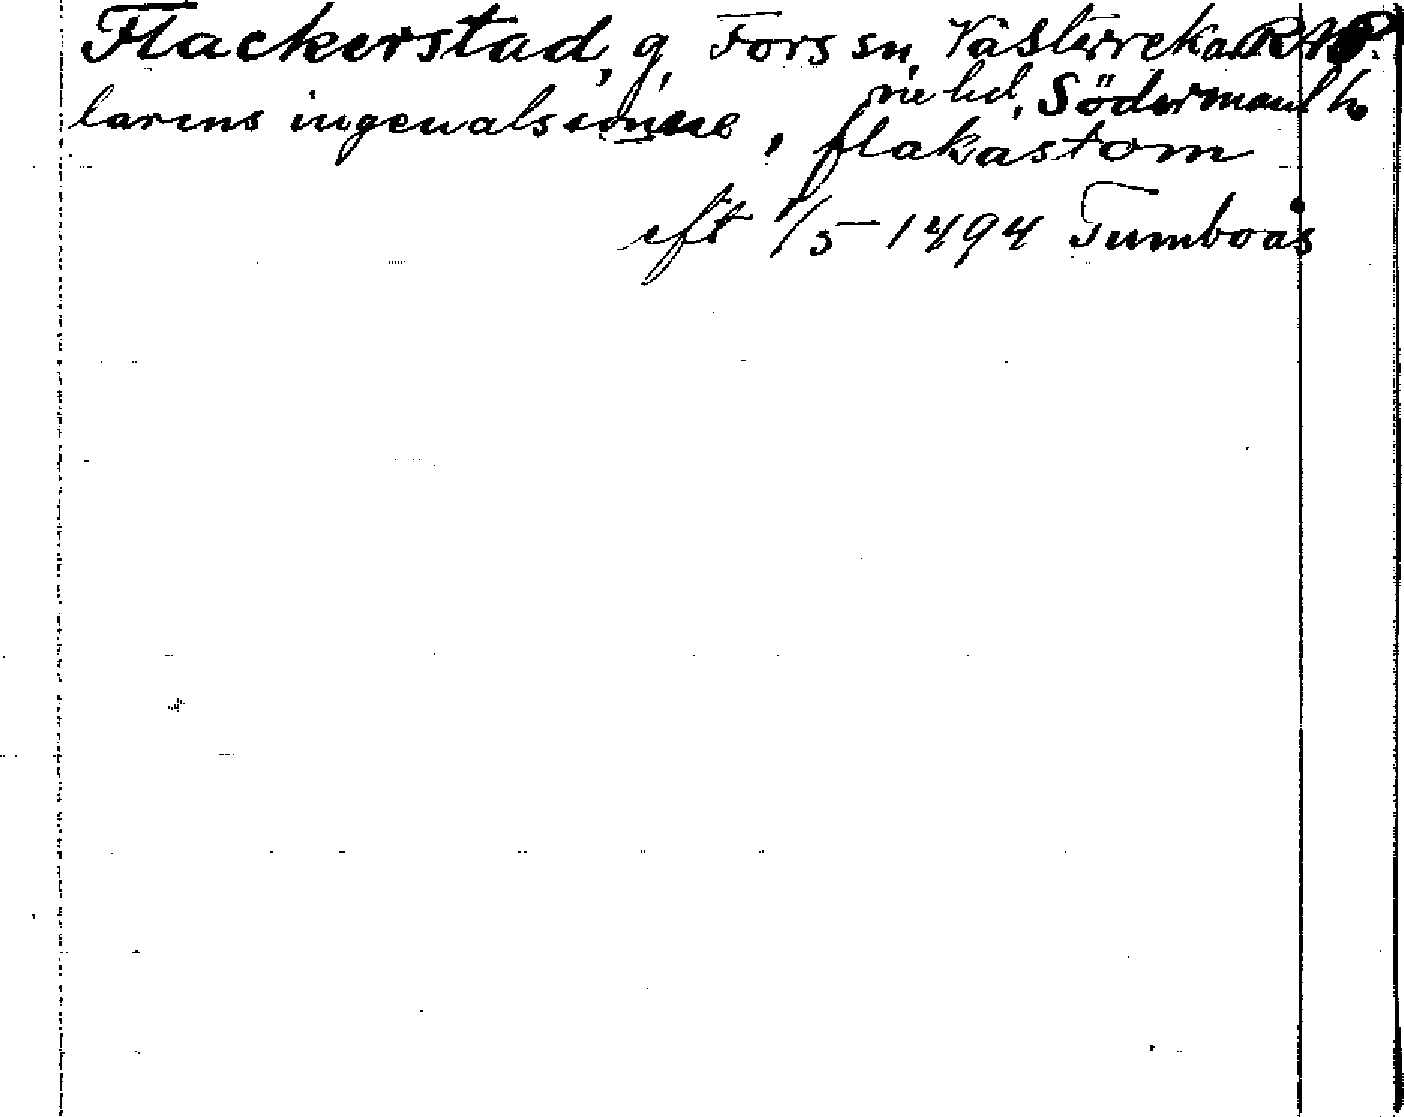 Flackerstad, g, Fors sn, Västerreka
rne hd, Södermanl
larens ingeualssonne, flakastom
eft 1/5-1494 Tumboås